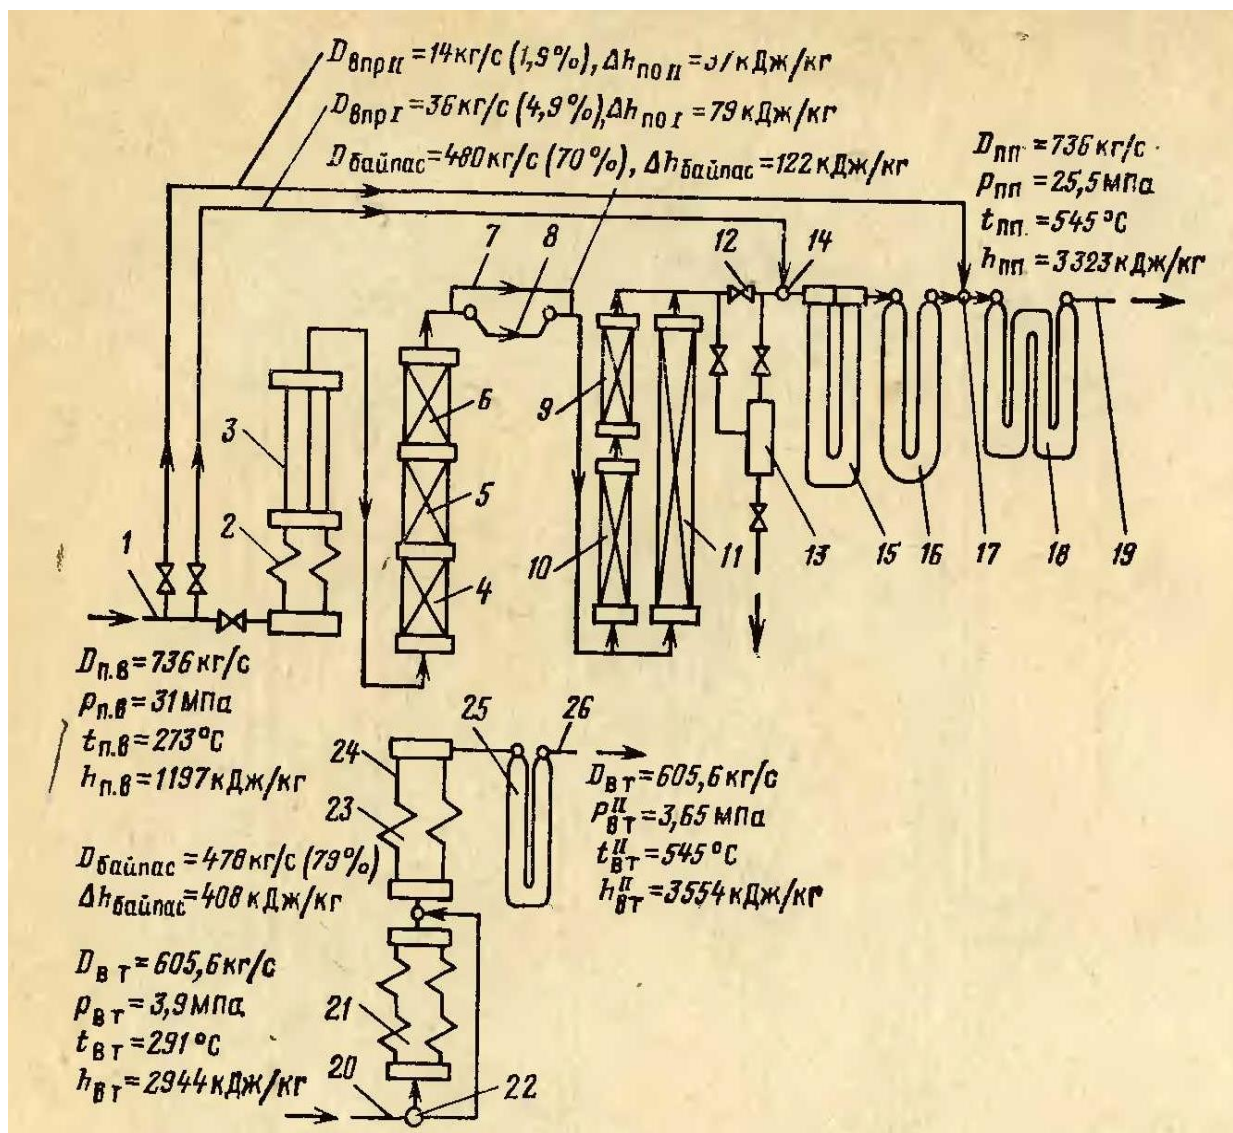 D впр II = 14 кг/с (1,9%), Δh по II = кДж/кг
D впр I = 36 кг/с (4,9%), Δh по I = 79 кДж/кг
D байпас = 480 кг/с (70%), Δh байпас = 122 кДж/кг
D пп = 736 кг/с
p пп = 25,5 МПа
t пп = 545 °С
h пп = 3323 кДж/кг
7 8 12 14
3 6 9
2 5
1 4 10 11 13 15 16 17 18 19
D п.в = 736 кг/с
p п.в = 31 МПа
t п.в = 273 °С
h п.в = 1197 кДж/кг
25 26
24
23
D вт = 605,6 кг/с
p II вт = 3,65 МПа
t II вт = 545 °С
h II вт = 3554 кДж/кг
D байпас = 478 кг/с (79%)
Δh байпас = 408 кДж/кг
D вт = 605,6 кг/с
p вт = 3,9 МПа
t вт = 291 °С
h вт = 2944 кДж/кг
21
20 22